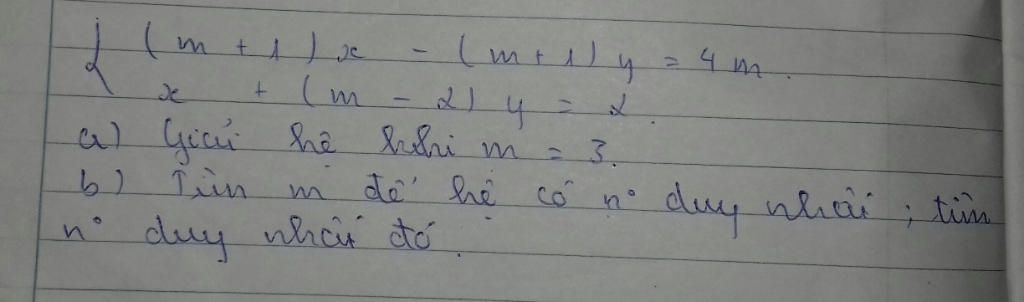 { (m + 1)x - (m + 1)y = 4m.
x + (m - 2)y = 2.
a) Giải hệ khi m = 3.
b) Tìm m để hệ có n° duy nhất ; tìm
n° duy nhất đó.